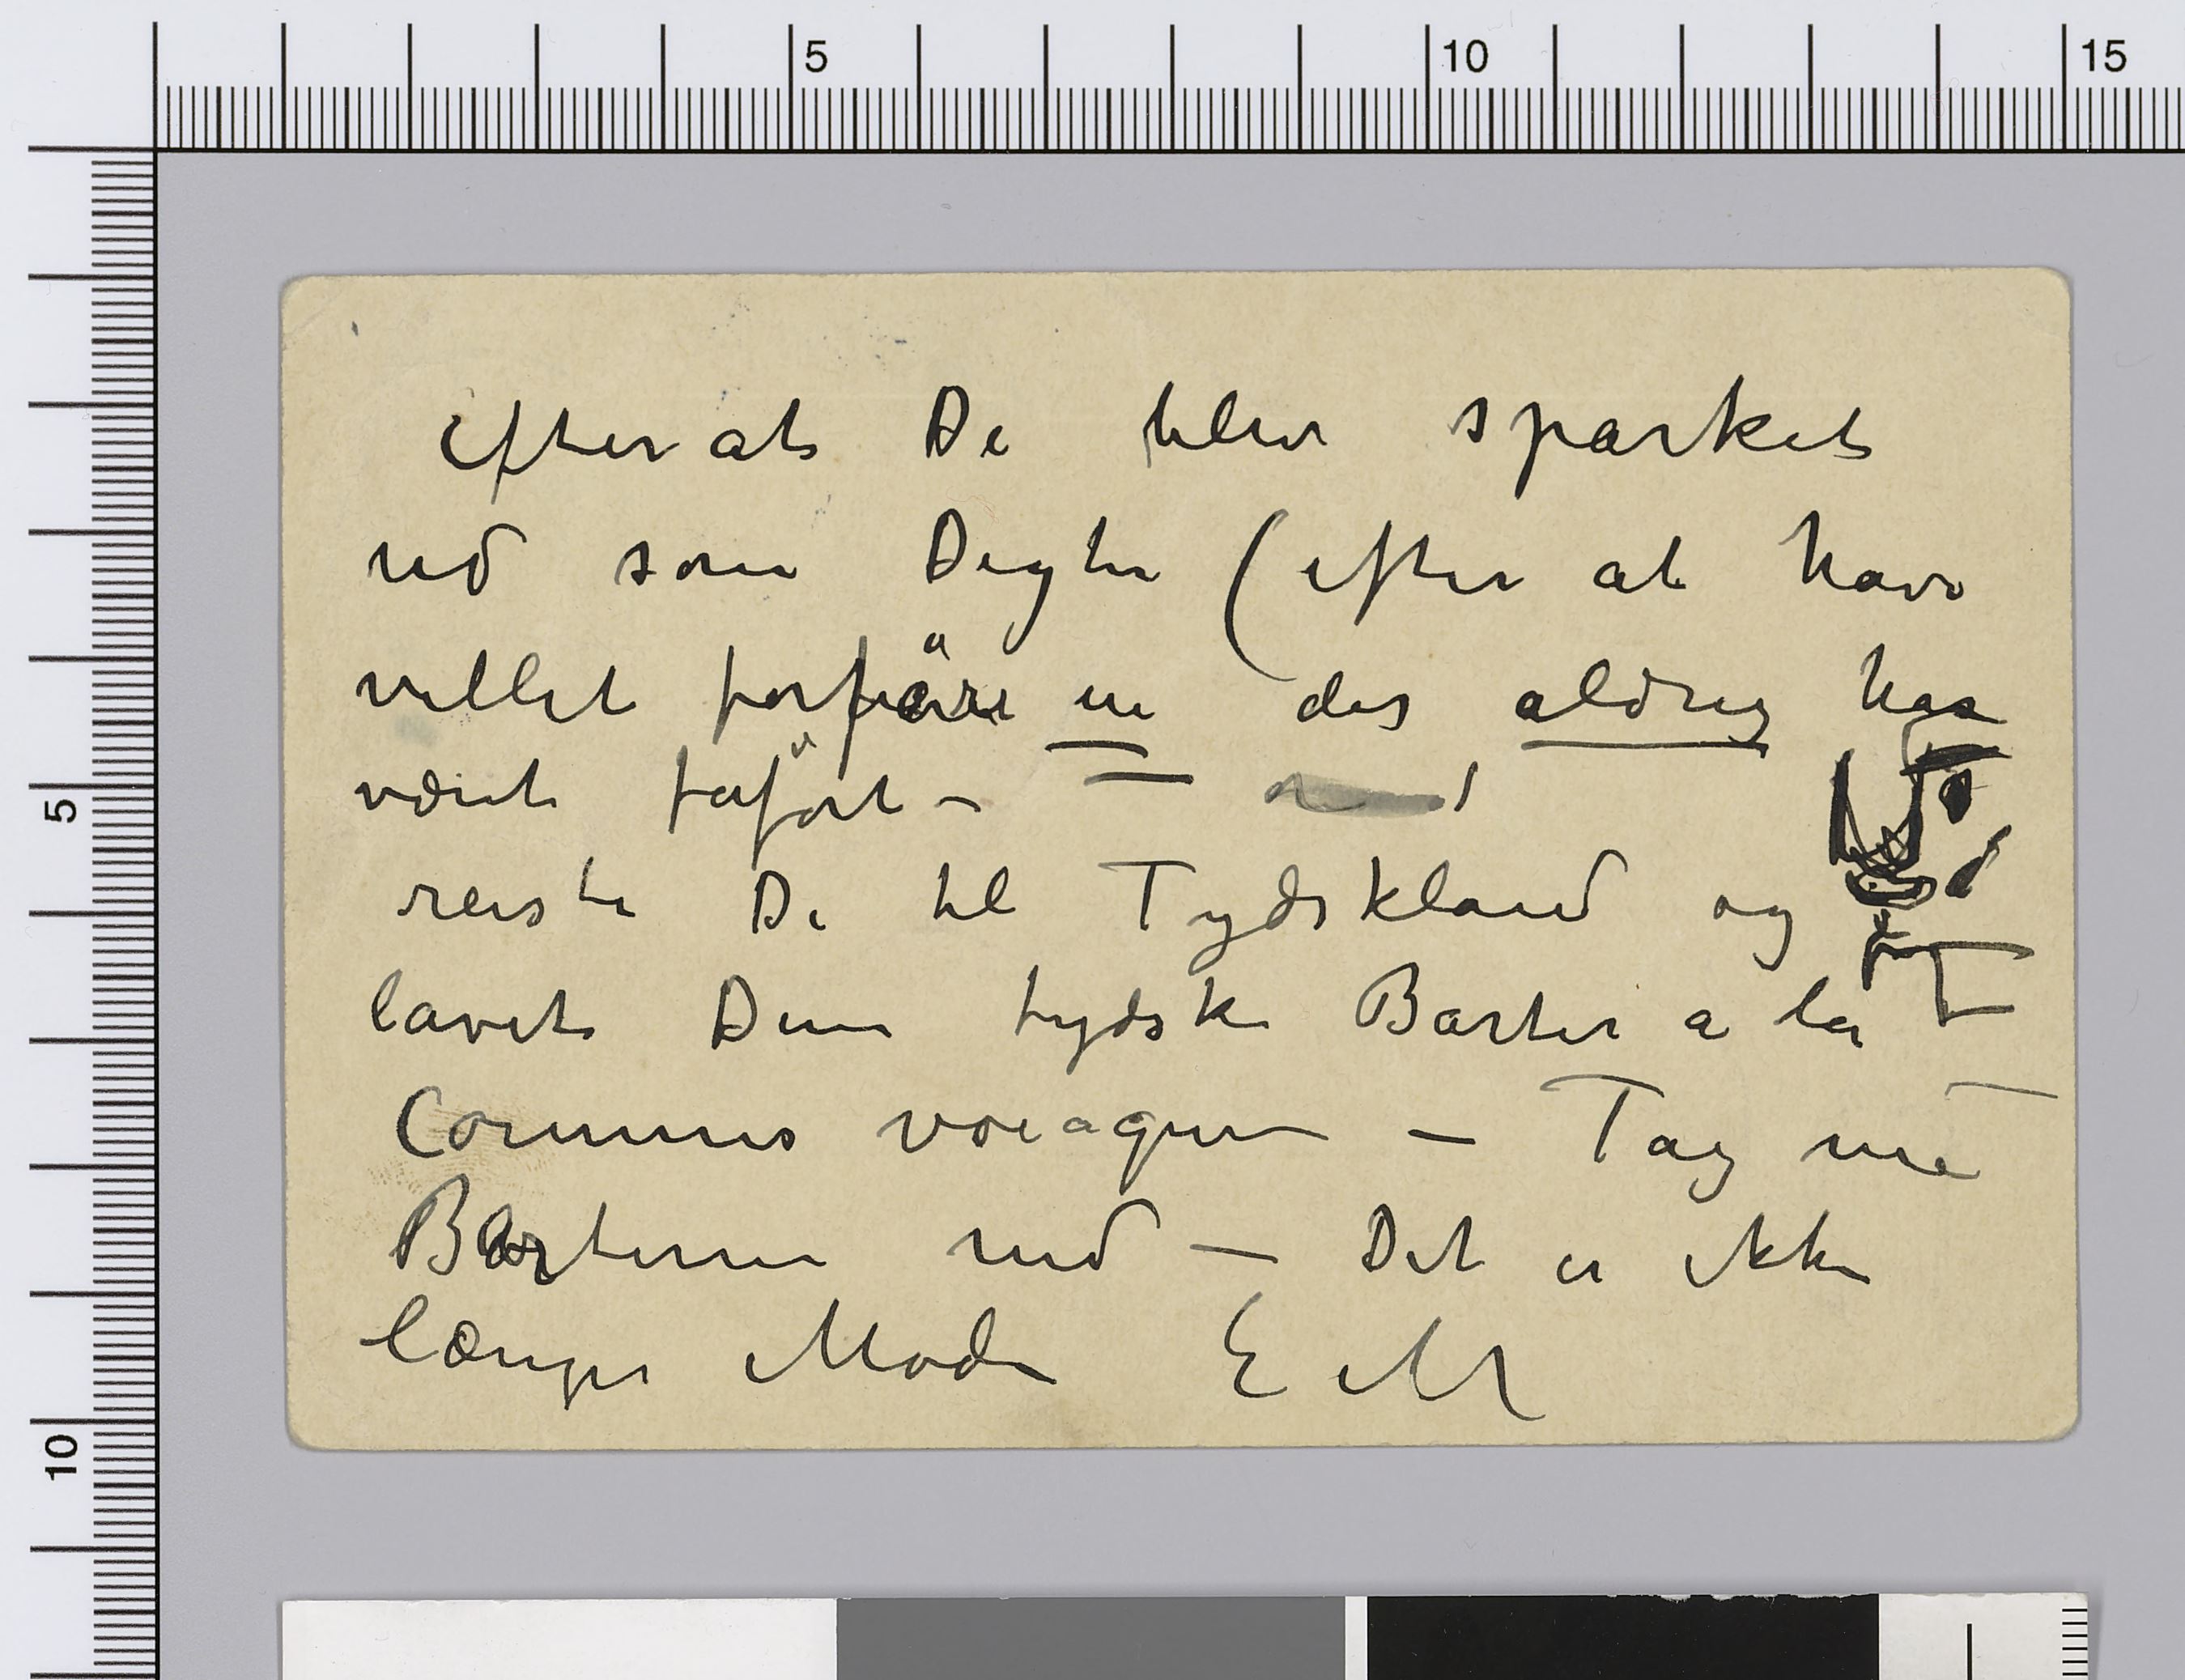 5 10 15
Efter at De blev sparket
ud som Digter (efter at have
villet forføre en der aldrig har
5
været forført –
reiste De til Tydskland og
lavet Dem tydske Barter a la
Commis voiageur – Tag nu
Barterne ned – Det er ikke
længer Mode E M
10